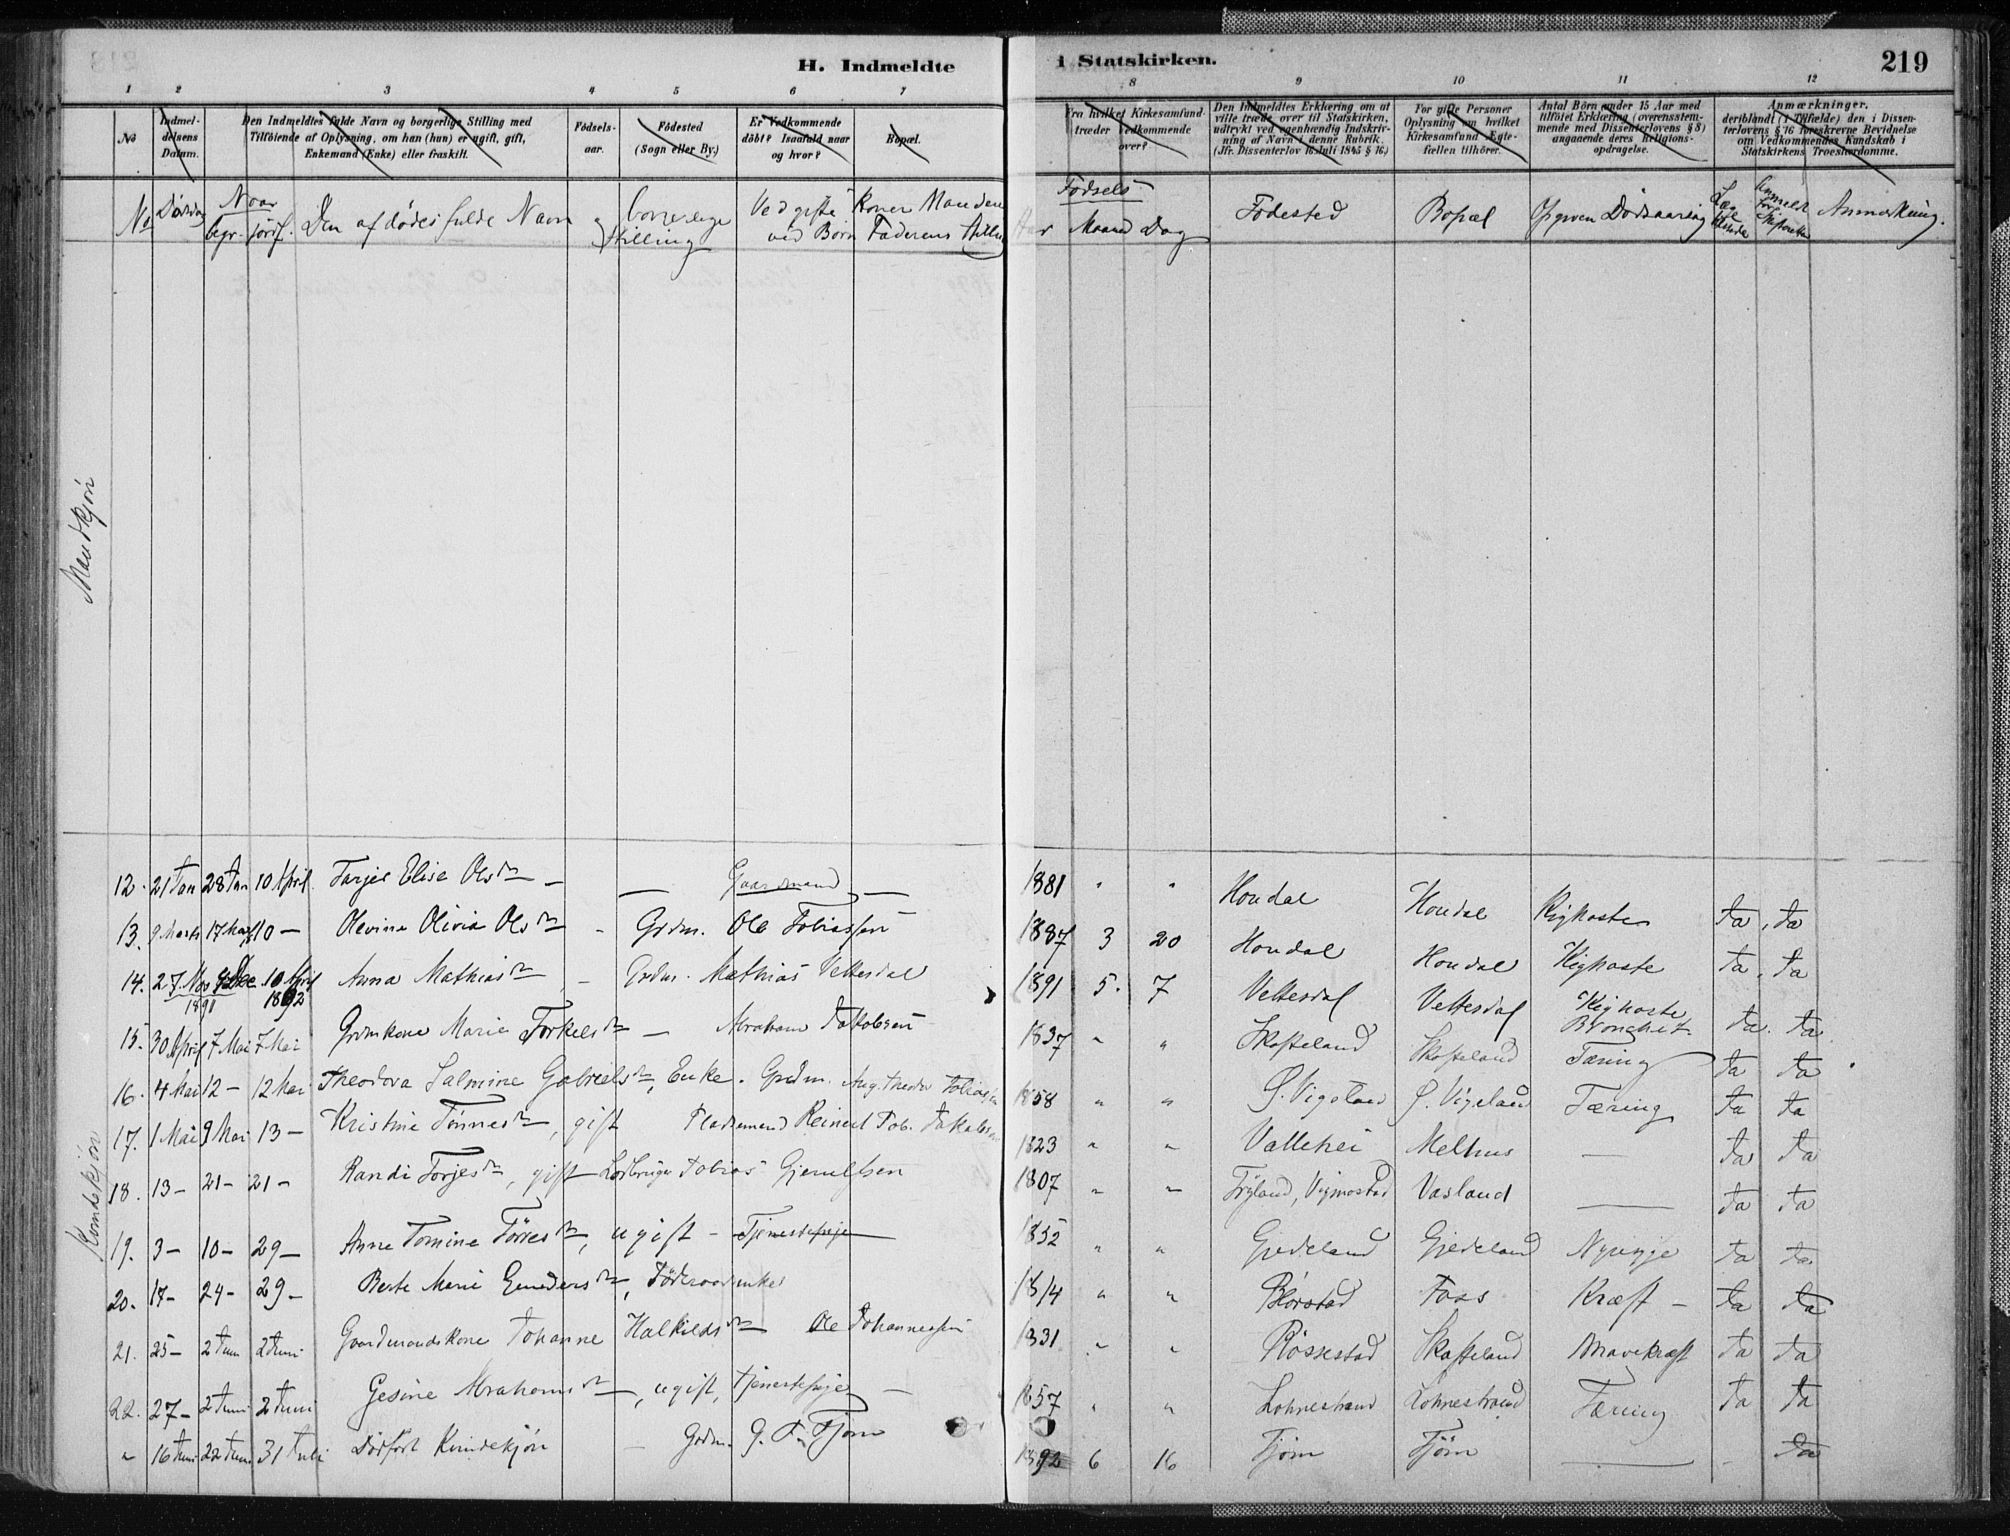 H. Indmeldte i Statskirken. 219
1 2 3 4 5 6 7 8 9 10 11 12
No Indmeldelsens Datum. Den Indmeldtes fulde Navn og borgerlige Stilling med Tilföiende af Oplysning, om han (hun) er ugift, gift, Enkemand (Enke) eller fraskilt. Födselsaar. Födested (Sogn eller By.) Er Vedkommende döbt? Isaafald naar og hvor? Bopæl. Fra hvilket Kirkesamfund træder Vedkommende over? Den Indmeldtes Erklæring om at ville træde over til Statskirken, udtrykt ved egenhændig Indskrivning af Navn i denne Rubrik. (Jfr. Dissenterlov 16 Juli 1845 § 16.) For gifte Personer Oplysning om hvilket Kirkesamfund Ægtefællen tilhörer. Antal Börn under 15 Aar med tilföiet Erklæring (overensstemmende med Dissenterlovens § 8) angaaende deres Religionsopdragelse. Anmærkninger, deriblandt (i Tilfælde) den i Dissenterlovens § 16 foreskrevne Bevidnelse om Vedkommendes Kundskab i Statskirkens Troeslærdomme.
No Dödsdag Naar begr. jordf. Den afdödes fulde Navn og borgerlige Stilling Ved gifte Koner Manden ved Börn Faderens Stilling Födsels Aar Maaned Dag Födested Bopæl Opgiven Dödsaarsag Anmerkning.
Mandkjön
Kvindekjön
12. 21 Jan 28 Jan 10 April Tarjel Elise Olsdn — — Gaardmand — 1881 " " Homdal Homdal Kighoste Ja, Ja
13. 9 Marts 17 Marts 10 — Olevine Olivia Olsdn — Grdm. Ole Tobiassen 1887 3 20 Homdal Homdal Kighoste Ja. Ja
14. 27 Nov 4 Dec 1891 10 April 1892 Anna Mathiasdn — Grdm. Mathias Vettesdal 1891 5. 7 Vettesdal Vettesdal Kighoste Bronchit Ja. Ja
15. 30 April 7 Mai 7 Mai Grdmkone Marie Torkelsdn — Abraham Jakobsen 1837 " " Skofteland Skofteland Tæring Ja Ja
16. 4 Mai 12 — 12 Mai Theodora Salmine Gabrielsdn, Enke. Grdm. Aug. Theodor Tobiassen 1858 " " Ö. Vigeland Ö. Vigeland Tæring Ja Ja
17. 1 Mai 9 Mai 13 — Kristine Tönnesdn, gift Pladsemand Reinert Tob. Jakobsen 1823 " " Vallehei Melhus — Ja Ja
18. 13 — 21 — 21 — Randi Torjesdn, gift Tobias Gjerulfsen 1807 " " Tryland, Vigmostad Vasland — Ja Ja
19. 3 — 10 — 29 — Anne Tomine Törresdn, ugift — Tjenestepige 1832 " " Gjedeland Gjedeland Nyresyge Ja Ja
20. 17 — 24 — 29 — Berte Marie Gundersdn, Föderaadsenke 1814 " " Foss Kræft — Ja Ja
21. 25 — 2 Juni 2 Juni Gaardmandskone Johanne Halkildsdn — Ole Johannessen 1831 " " Rössestad Skofteland Mavekræft Ja Ja
22. 27 — 2 Juni 2 Juni Gesine Abrahamsdn —, ugift, Tjenestepige — 1857 " " Lohnestrand Lohnestrand Tæring Ja Ja
" 16 Juni 22 Juni 31 Juli Dödfödt Kvindekjön — Grdm. G. T. Fjörn 1892 6 16 Fjörn Fjörn — - Ja